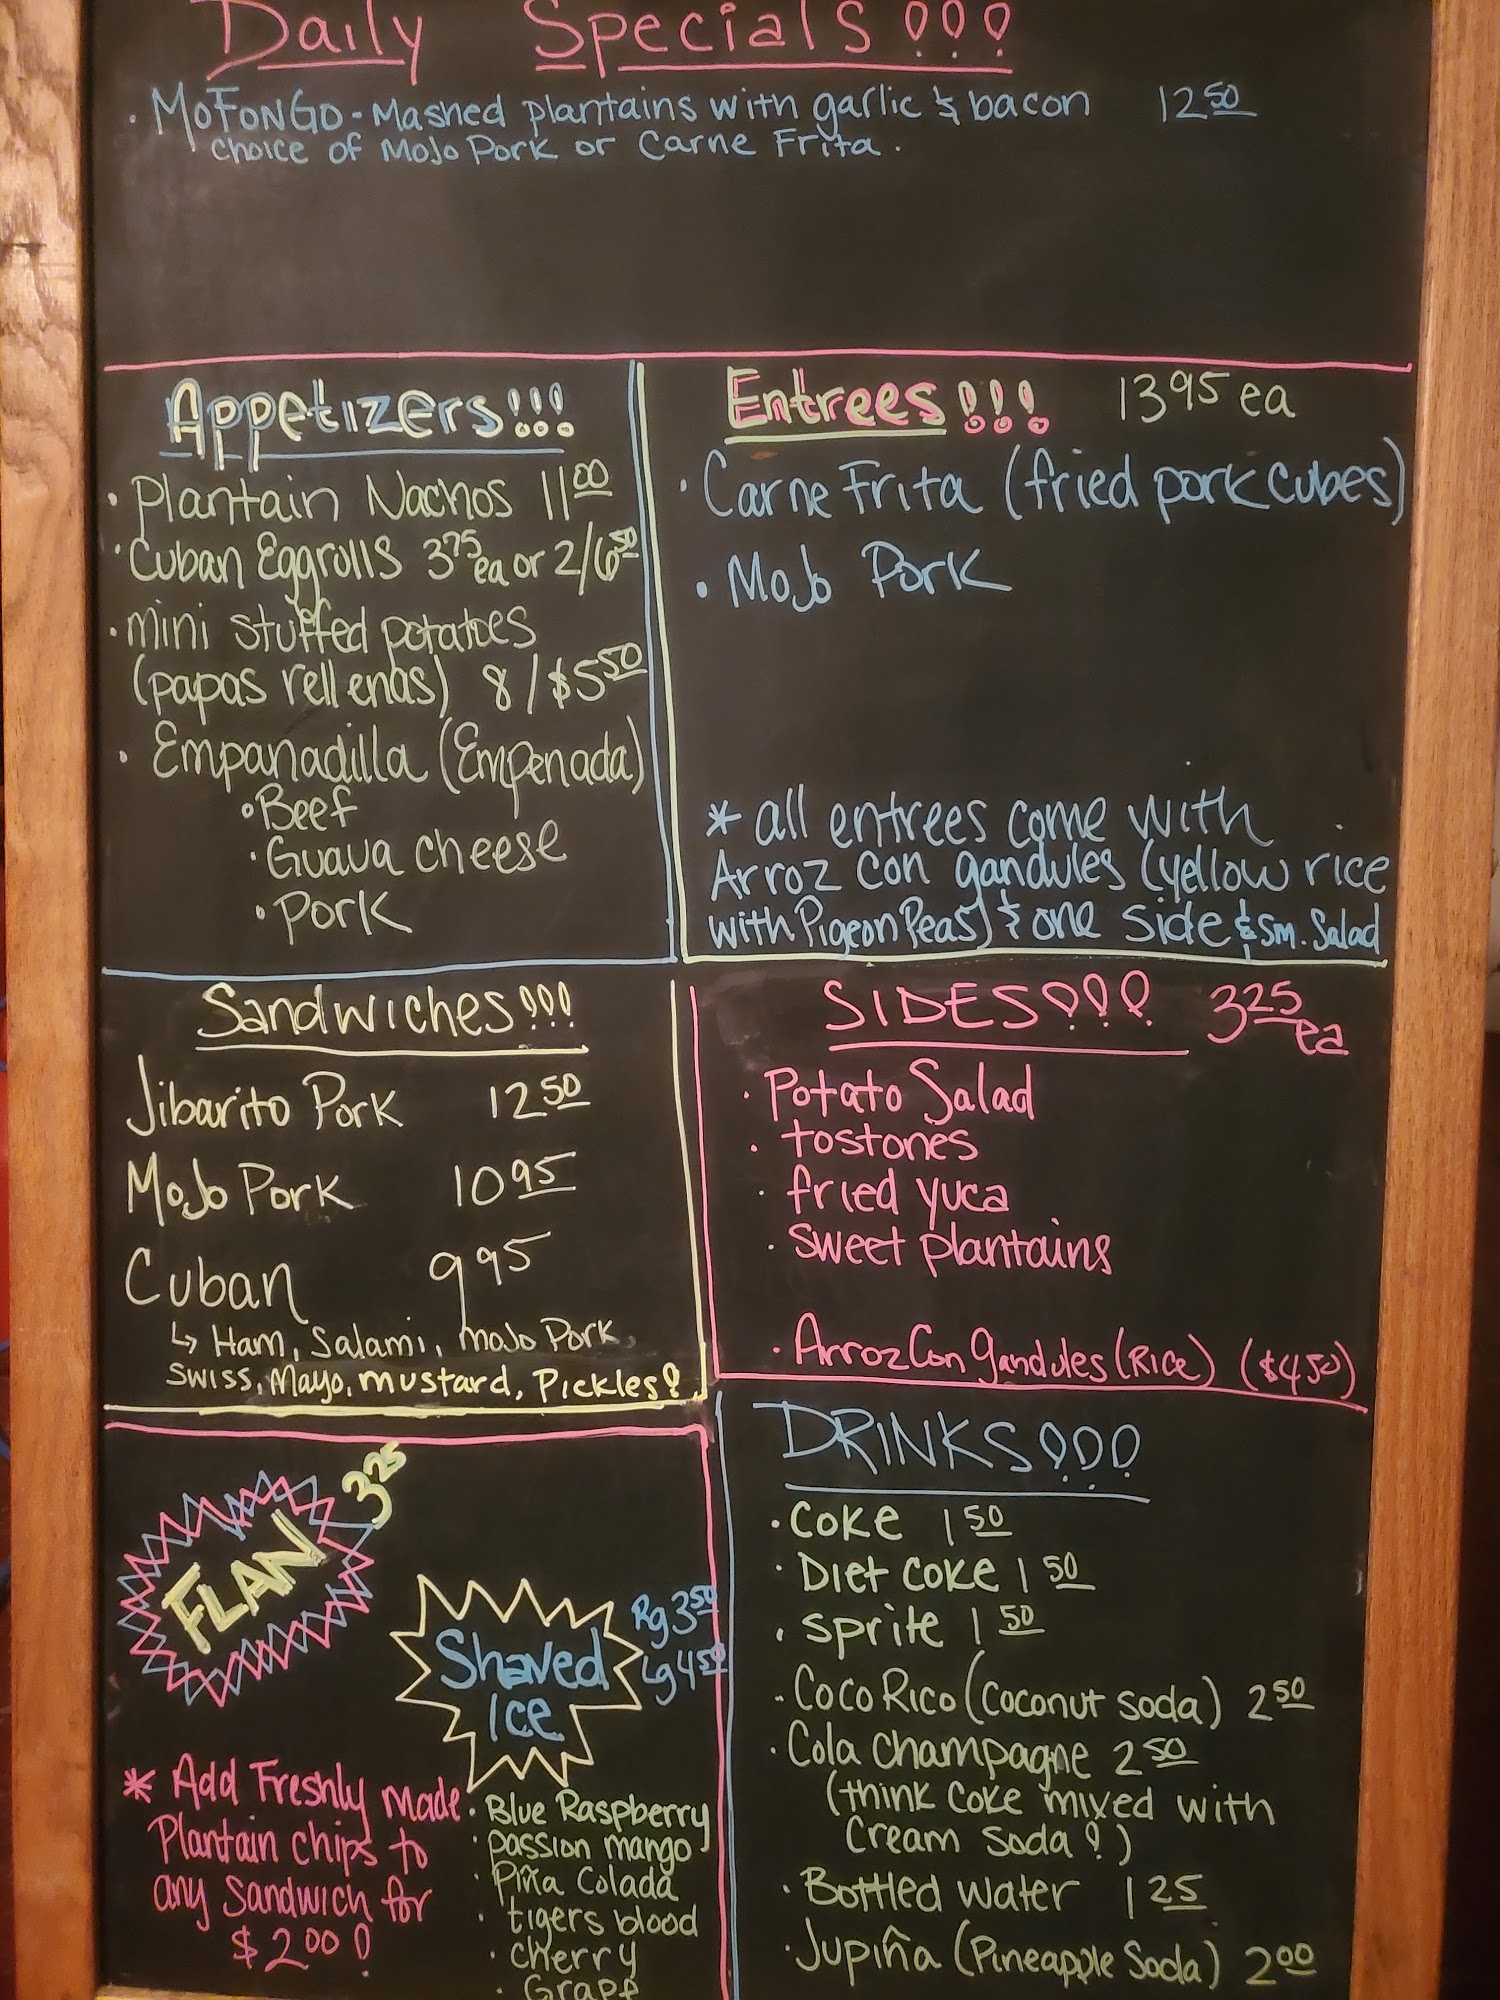 Daily Specials!!!
· MoFonGo - Mashed plantains with garlic & bacon 12 50
choice of Mojo Pork or Carne Frita.
Appetizers!!!
· Plantain Nachos 11 00
· Cuban Eggrolls 3 75 ea or 2/6 50
· mini stuffed potatoes
(papas rellenas) 8/$5 50
· Empanadilla (Empenada)
· Beef
· Guava cheese
· Pork
Entrees!!! 13 95 ea
· Carne Frita (fried pork cubes)
· Mojo Pork
* all entrees come with
Arroz con gandules (yellow rice
with Pigeon Peas) & one side & sm. Salad
Sandwiches!!!
Jibarito Pork 12 50
Mojo Pork 10 95
Cuban 9 95
↳ Ham, Salami, mojo Pork,
Swiss, Mayo, mustard, Pickles!
SIDES!!! 3 25 ea
· Potato Salad
· tostones
· fried yuca
· Sweet plantains
· Arroz Con gandules (Rice) ($4 50)
FLAN 3 25
Shaved
Ice
Rg 3 50
Lg 4 50
* Add Freshly made
Plantain chips to
any Sandwich for
$2 00!
· Blue Raspberry
· passion mango
· Piña Colada
· tigers blood
· cherry
· Grape
DRINKS!!!
· Coke 1 50
· Diet coke 1 50
· sprite 1 50
· Coco Rico (Coconut soda) 2 50
· Cola champagne 2 50
(think Coke mixed with
Cream Soda!)
· Bottled water 1 25
· Jupiña (Pineapple Soda) 2 00